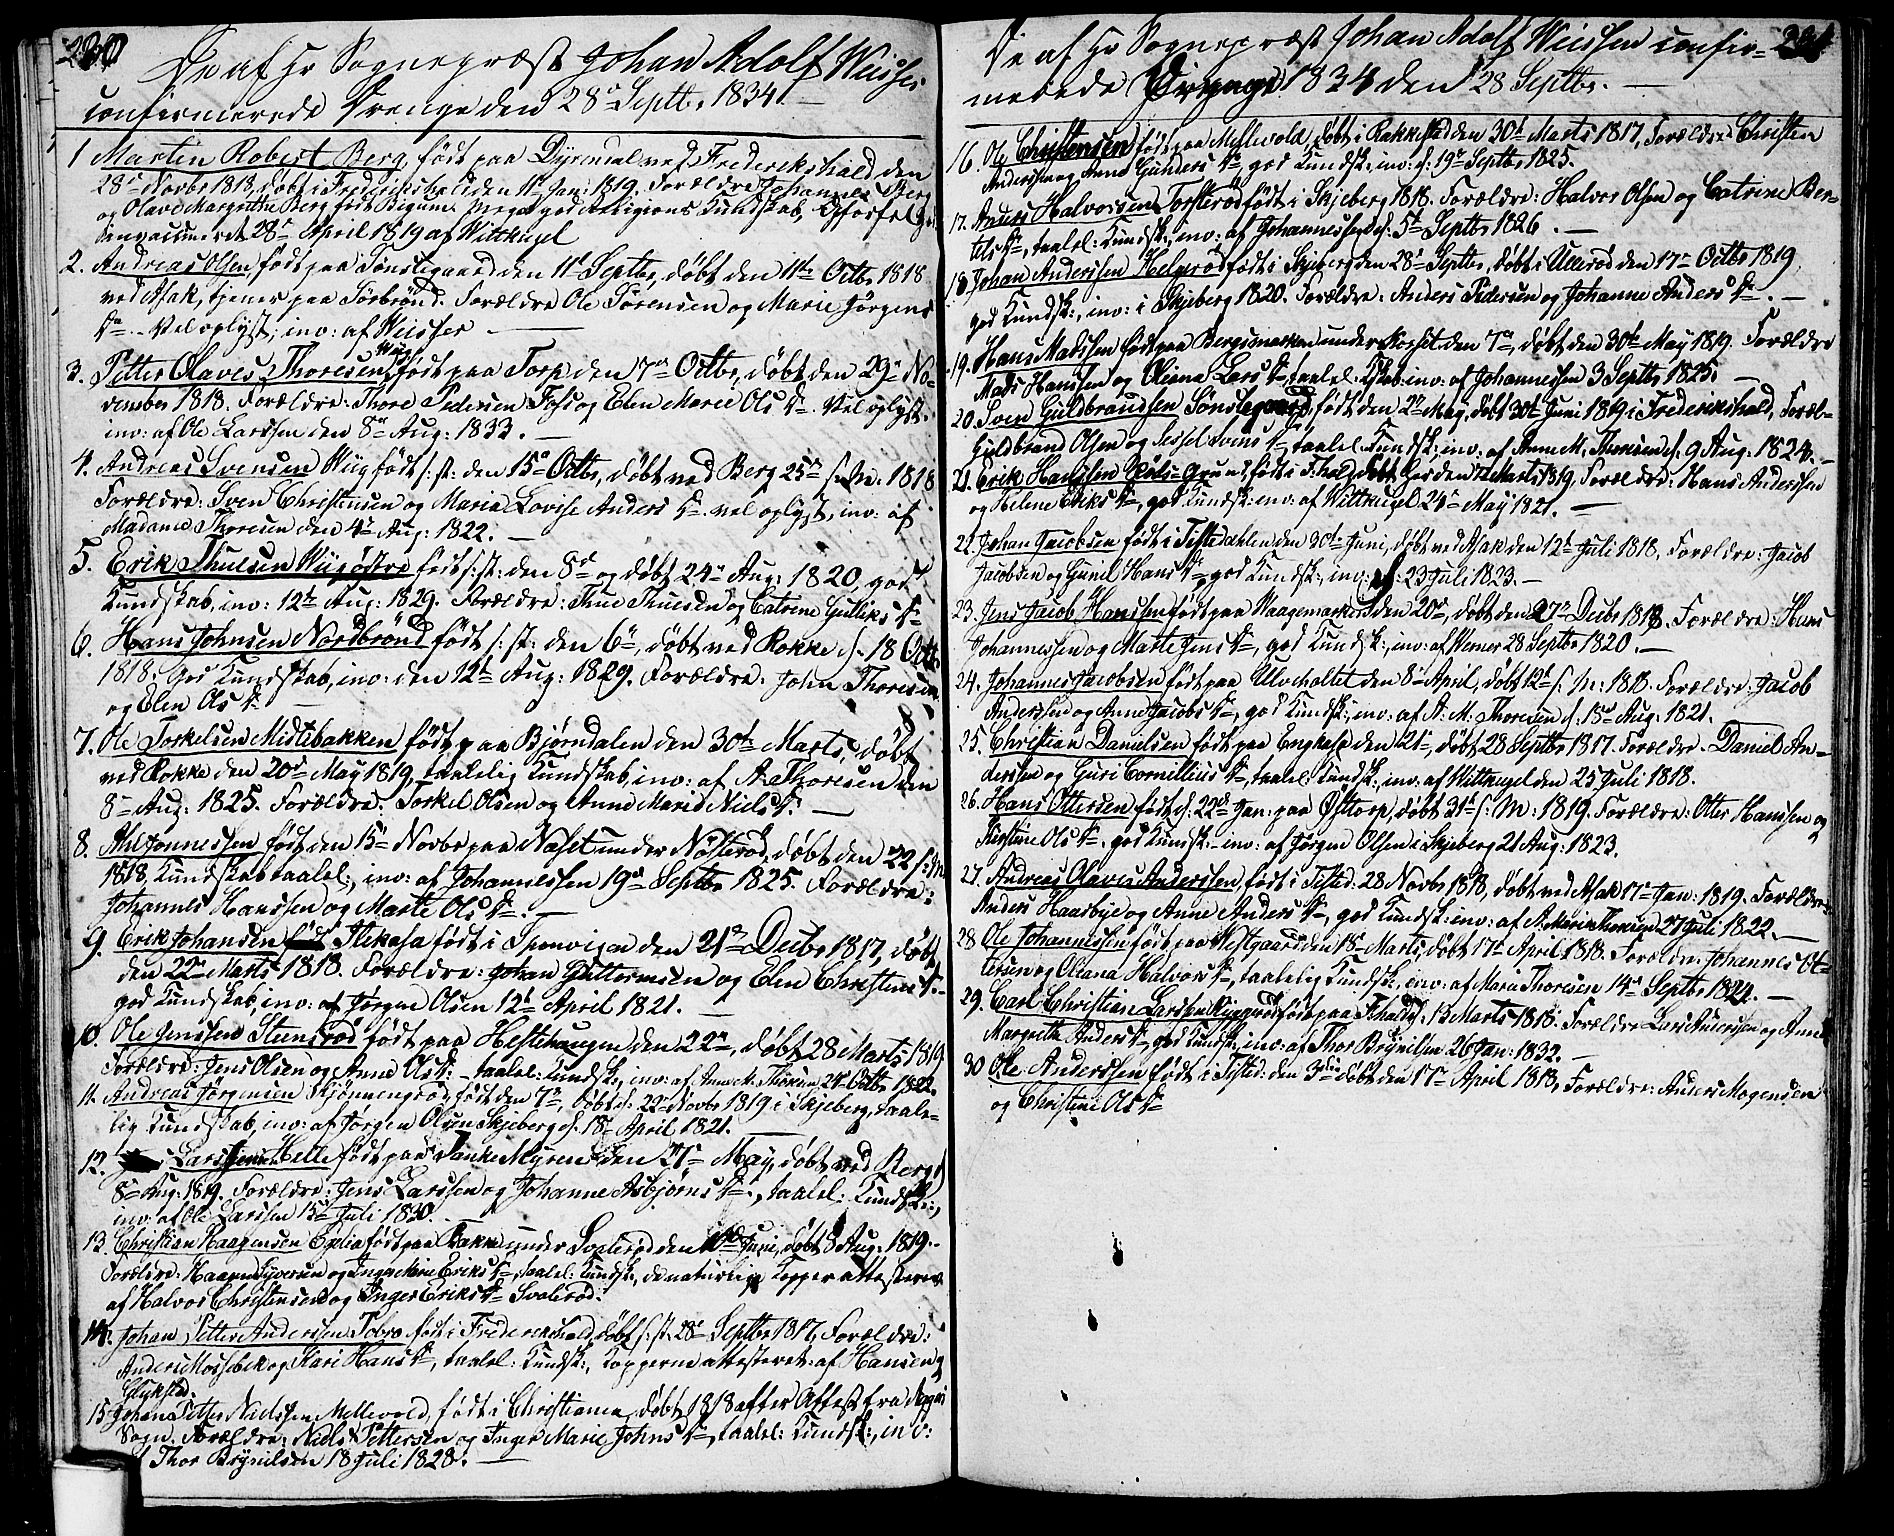 De af Hr Sognepræst Johan Adolf Wisser
confirmerede Drenge den 28de Septbr 1834.
1 Martin Robert Berg, født paa Dyrendal ved Frederikshald den
28de Novbr 1818, døbt i Frederikshald den 11te Jan: 1819. Forældre Johannes Berg
og Olave Margrethe Berg født Bigum. Meget god Religions Kundskab, Opførsel god
vaccineret 28de April 1819 af Wittkugel
2. Andreas Olsen født paa Sønstegaard den 11te Septbr, døbt den 11te Octbr 1818
ved Asak, tjener paa Sørbrønd. Forældre Ole Sørensen og Marie Jørgens
Dr. Vel oplyst, inv: af Wisser
3. Petter Olaves Thoresen Wiig født paa Torp den 7de Octbr, døbt den 29de No-
vember 1818. Forældre: Thore Pedersen Foss og Elen Marie Ols Dr. Vel oplyst.
inv: af Ole Larssen den 8de Aug: 1833.
4. Andreas Svensen Wiig født s: st: den 15de Octbr, døbt ved Berg 25de s: M: 1818
Forældre: Sven Christensen og Maria Lovise Anders Dr. vel oplyst, inv: af
Madame Thoresen den 4de Aug: 1822.
5. Erik Thuesen Wiigøstre født s: st: den 8de og døbt 24de Aug: 1820, god
Kundskab, inv: 12te Aug: 1829. Forældre: Thue Thuesen og Catrine Gulliks Dr
6. Hans Johnsen Nordbrönd født s: st: den 6te, døbt ved Rokke d. 18 Octb
1818. God Kundskab, inv: den 12te Aug: 1829. Forældre: John Thoresen
og Elen Ols Dr
7. Ole Torkelsen Midtibakken født paa Bjørndalen den 30te Marts, døbt
ved Rokke den 20de May 1819, taalelig Kundskab, inv: af A: Thoresen den
8de Aug: 1825. Forældre: Torkel Olsen og Anne Marie Niels Dr.
8. Ahl Johannessen født den 15de Novbr paa Næset under Nösterød, døbt den 22 s: M
1818 Kundskab taalel:, inv: af Johannessen 19de Septbr 1825. Forældre:
Johannes Hanssen og Marte Ols Dr.
9. Erik Johansen Ilikasa født i Sponvigen den 21de Decbr 1817, døbt
den 22de Marts 1818. Forældre: Johan Guttormsen og Elen Christens Dr.
god Kundskab, inv: af Jørgen Olsen 12te April 1821.
10. Ole Jenssen Stensrød født paa Hestehaugen den 22de, døbt 28 Marts 1819
Forældre: Jens Olsen og Anne Ols Dr. taalel: Kundsk:, inv: af Anne M. Thoresen 24de Octbr 1822.
11. Andreas Jørgensen Skjønnengrod født den 7de, døbt d. 22de Novbr 1819 i Skjeberg, taale-
lig Kundskab, inv: af Jørgen Olsen Skjeberg d. 18de April 1821.
12. Lars Jenssen Helle født paa Tanke Myren den 21de May, døbt ved Berg d
8de Aug: 1819. Forældre: Jens Larssen og Johanne Asbjørns Dr., taalel: Kundsk:,
inv: af Ole Larssen 15de Juli 1830.
13. Christian Haagensen født paa Bakke under Svalerød den Juni, døbt 8 Aug: 1819.
Forældre: Haagen Syversen og Inger Marie Eriks Dr, taalel: Kundsk:, de naturlige Kopper attesteret
af Halvor Christensen og Inger Eriks Dr Svalerød.
14. Johan Petter Anderssen Tobro født i Frederikshald, døbt s: st: 28de Septbr 1817, Forældre:
Anders Mossebek og Kari Hans Dr, taalel: Kundsk:, Kopperne attesteret af Hansen og
Glykstad.
15 Johan Petter Nielssen Mellevold, født i Christiania, døbt 1818 efter Attest fra
Sogn. Forældre: Niels Pettersen og Inger Marie Johns Dr, taalel: Kundsk:, inv:
af Thor Brynilsen 18 Juli 1828.
De af Hr Sognepræst Johan Adolf Wisser confir-
merede Drenge 1834 den 28 Septbr.
16. Ole Christensen født paa Mellevold, døbt i Rakkestad den 30te Marts 1817, Forældre Christen
Anderssen og Anne Gunders Dr, god Kundsk:, inv: d: 19de Septbr 1825.
17. Anders Halvorssen Torsterød født i Skjeberg 1818. Forældre: Halvor Olsen og Catrine Ber-
tels Dr, taalel: Kundsk:, inv: af Johannessen d. 5te Septbr 1826.
18 Johan Anderssen Helgerød født i Skjeberg den 28de Septbr, døbt i Ullerød den 17de Octbr 1819,
god Kundsk:, inv: i Skjeberg 1820. Forældre: Anders Pedersen og Johanne Anders Dr.
19. Hans Madssen født paa Bergsmarken under den 7de, døbt den 30te May 1819. Forældre
Mads Hanssen og Oliana Lars Dr, taalel: Kskab inv: af Johannessen 3 Septbr 1825.
20. Sven Guldbrandsen Sønstegaard, født den 2de May, døbt 30te Juni 1819 i Frederikshald, Foræl-
Guldbrand Olsen og Sessel Svens Dr, taalel: Kundsk:, inv: af Anne M. Thoresen d. 9 Aug: 1824.
21. Erik Hanssen født i F:hald, døbt her den Marts 1819. Forældre: Hans Anderssen
og Helene Eriks Dr, god Kundsk: inv: af Wittkugel 24de May 1821.
22. Johan Jacobsen født i Tistedalen den 30te Juni, døbt ved Asak den 12te Juli 1818, Forældre: Jacob
Jacobsen og Gunil Hans Dr god Kundsk:, inv: d: 23 Juli 1823.
23. Jens Jacob Hanssen født paa Waagemarken den 20de, døbt den 27de Decbr 1818. Forældre: Hans
Johannessen og Marte Jens Dr, god Kundsk:, inv: af Werner 28 Septbr 1820.
24. Johannes Jacobsen født paa Ulveholtet den 8de April, døbt 12te s: M: 1818. Forældre: Jacob
Anderssen og Anne Jacobs Dr, god Kundsk:, inv: af A: M. Thoresen d. 15de Aug: 1821.
25. Christian Danielsen født paa den 21de, døbt 28 Septbr 1817. Forældre: Daniel An-
derssen og Guri Cornillius Dr, taalel: Kundsk:, inv: af Wittkugel den 25 Juli 1818.
26. Hans Ottersen født d. 22de Jan: paa Østtorp, døbt 31te s: M: 1819. Forældre: Otter Hanssen og
Kirstine Ols Dr. god Kundsk:, inv: af Jørgen Olsen i Skjeberg 21 Aug: 1823.
27. Andreas Olaves Anderssen, født i Tisted: 28 Novbr 1818, døbt ved Asak 17de Jan: 1819. Forældre
Anders Haarbye og Anne Anders Dr, god Kundsk: inv: af A. Marie Thoresen 27 Juli 1822.
28 Ole Johannessen født paa Westgaard den 18de Marts, døbt 17de April 1818. Forældre: Johannes Ot-
tersen og Oliana Halvors Dr, taalelig Kundsk:, inv: af Marie Thoresen 14de Septbr 1824.
29. Carl Christian Larssen født paa F:hald d: 15 Marts 1818. Forældre Lars Anderssen og Anne
Margrethe Anders Dr god Kundsk:, inv: af Thor Brynilsen 26 Jan: 1832.
30 Ole Anderssen født i Tisted: den 3die døbt den 17de April 1818, Forældre: Anders Mogensen
og Christine Ols Dr